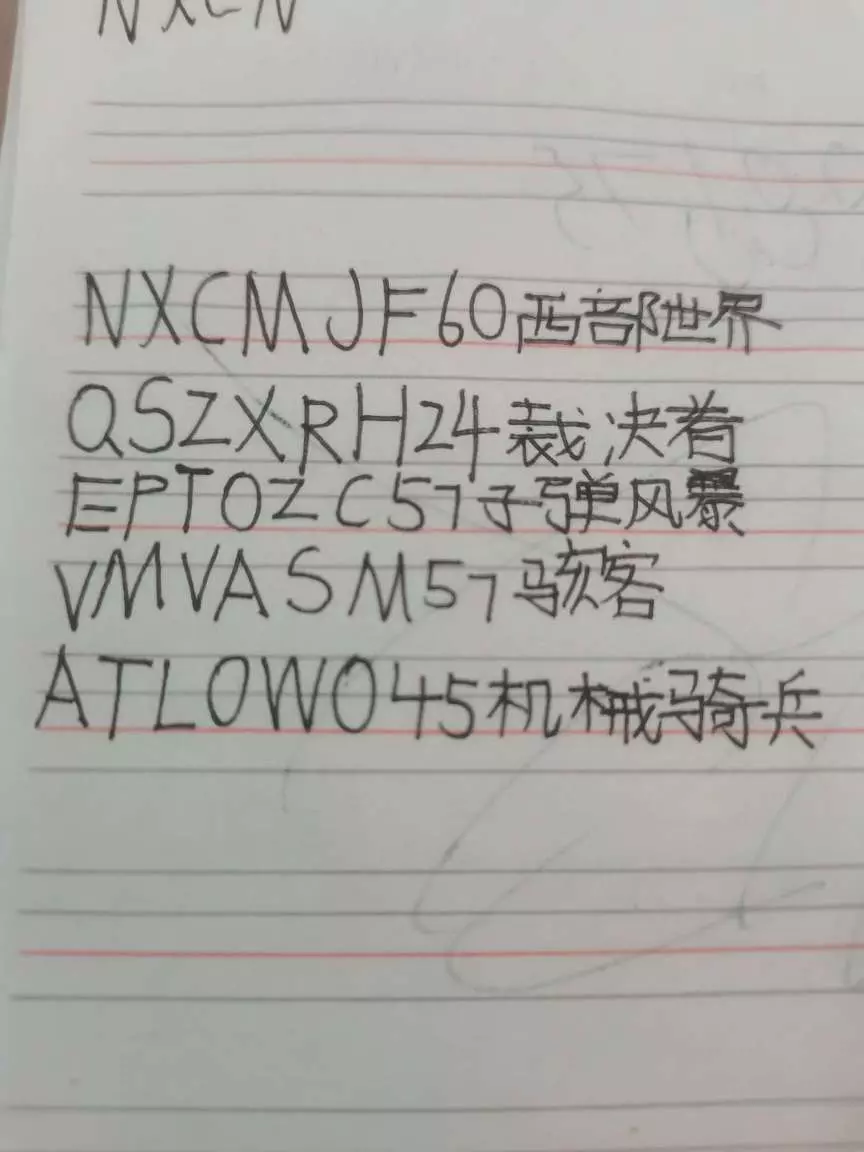 NXCN
NXCMJF60西部世界
QSZXRH24裁决着
EPTOZC57子弹风暴
VMVASM57骇客
ATLOWO45机械骑兵